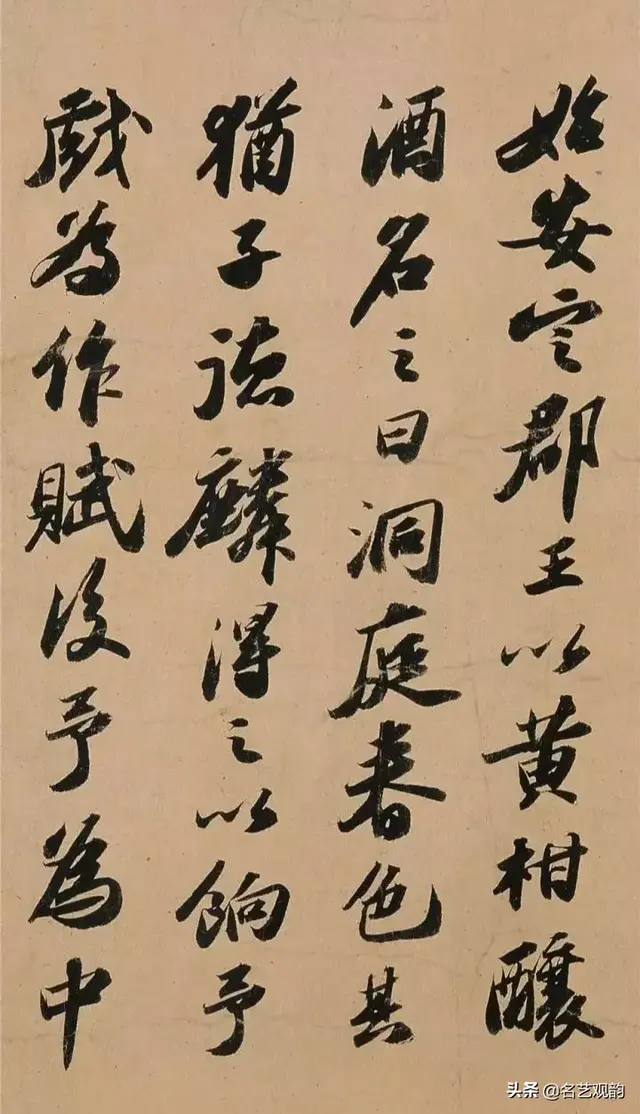 始安定郡王以黄柑釀
酒名之曰洞庭春色其
猶子德麟得之以餉予
戲為作賦後予為中
头条 @名艺观韵